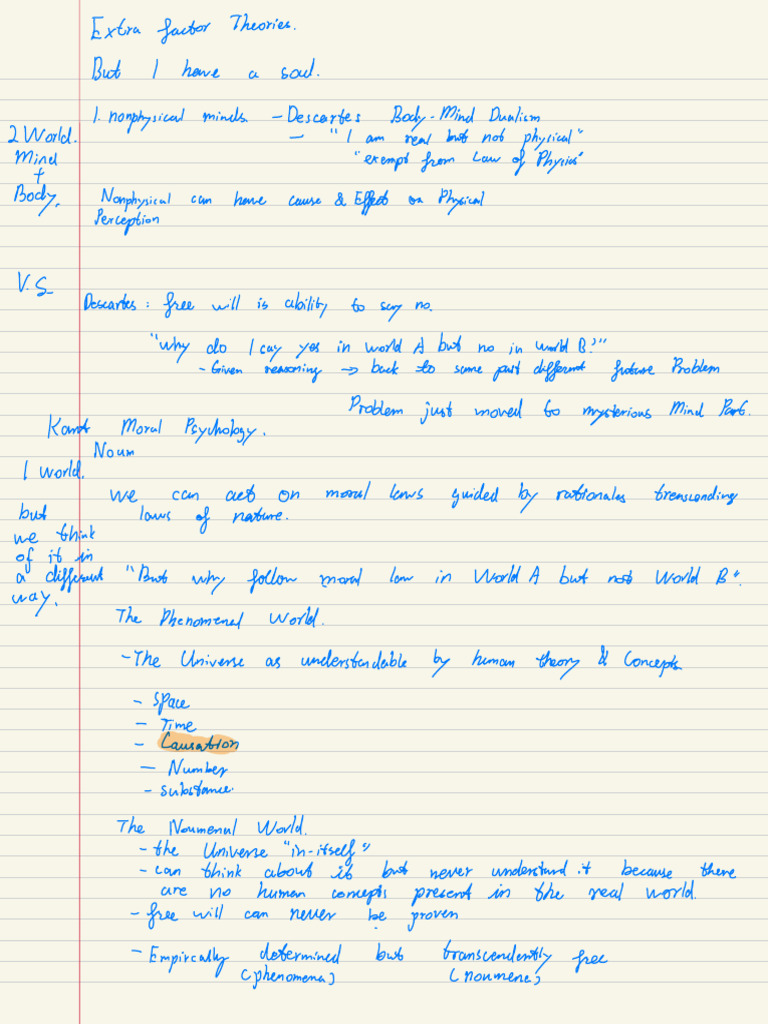 Extra factor Theories.
But I have a soul.
1. nonphysical minds. - Descartes Body-Mind Dualism
- "I am real but not physical"
"exempt from Law of Physics"
2 World.
Mind
+
Body.
Nonphysical can have cause & Effect on Physical
Perception
V.S
Descartes: free will is ability to say no.
"why do I say yes in world A but no in world B?"
- Given reasoning → back to same past different future Problem
Problem just moved to mysterious Mind Part.
Kant Moral Psychology.
Noum
1 world.
but
we think
of it in
a different
way.
we can act on moral laws guided by rationales transcending
laws of nature.
"But why follow moral law in World A but not World B".
The Phenomenal World.
- The Universe as understandable by human theory & Concepts
- Space
- Time
- Causation
- Number
- Substance.
The Noumenal World.
- the Universe "in-itself"
- can think about it but never understand it because there
are no human concepts present in the real world.
- free will can never be proven
- Empircally determined but transcendently free
(phenomena) (noumena)